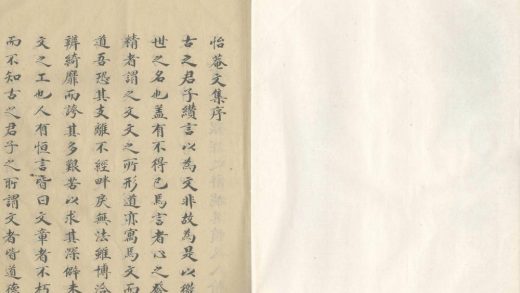 怡菴文集序
古之君子纘言以為文非故為是以徼
世之名也盖有不得已焉言者心之發
精者謂之文文之所形道亦寓焉文而
道吾恐其支離不經畔戾無法雖博洽
辨綺靡而誇其多艱苦以求其深僻未
文之工也人有恒言皆曰文章者不朽
而不知古之君子之所謂文者皆道德